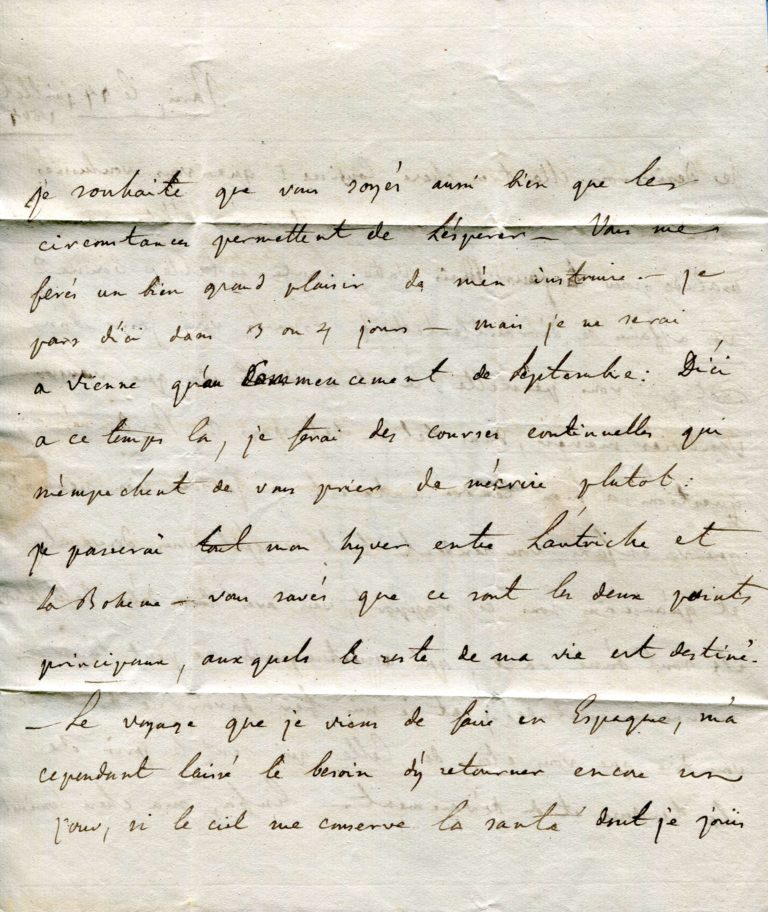 je souhaite que vous soyés aussi bien que les
circonstances permettent de l'éspérer — Vous me
ferés un bien grand plaisir de m'en instruire. — je
pars d'ici dans 3 ou 4 jours — mais je ne serai
a vienne qu'au commencement de Septembre: D'ici
a ce temps la, je ferai des courses continuelles qui
m'empechent de vous prier de m'écrire plutot:
je passerai tout mon hyver entre L'autriche et
la Boheme — vous savés que ce sont les deux points
principaux, auxquels le reste de ma vie est destiné.
— Le voyage que je viens de faire en Espagne, m'a
cependant laissé le besoin d'y retourner encore un
jour, si le ciel me conserve la santé dont je jouis